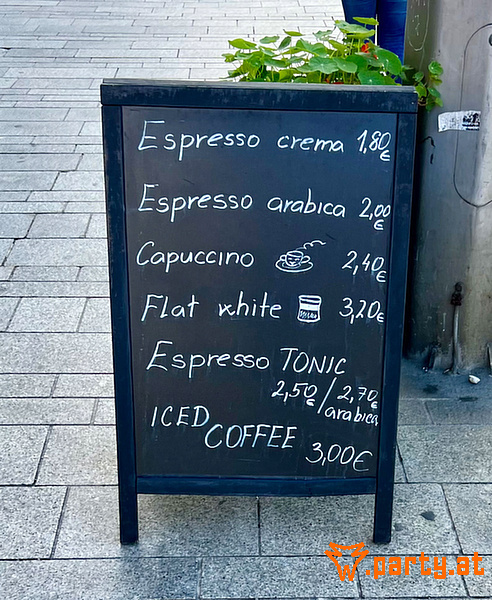 Espresso crema 1,80 €
Espresso arabica 2,00 €
Capuccino 2,40 €
Flat white 3,20 €
Espresso TONIC
2,50€/2,70€
arabica
ICED
COFFEE
3,00€
W.party.at